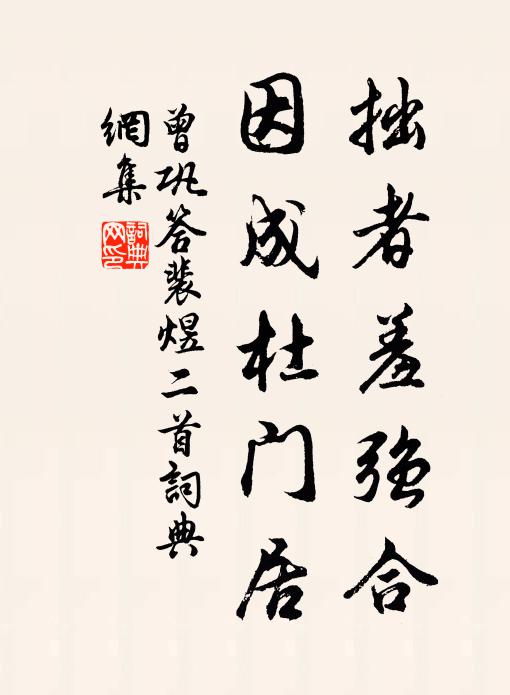 拙者羞强合
因成杜门居
曾巩答裴煜二首詞典
網集
詞典
网印